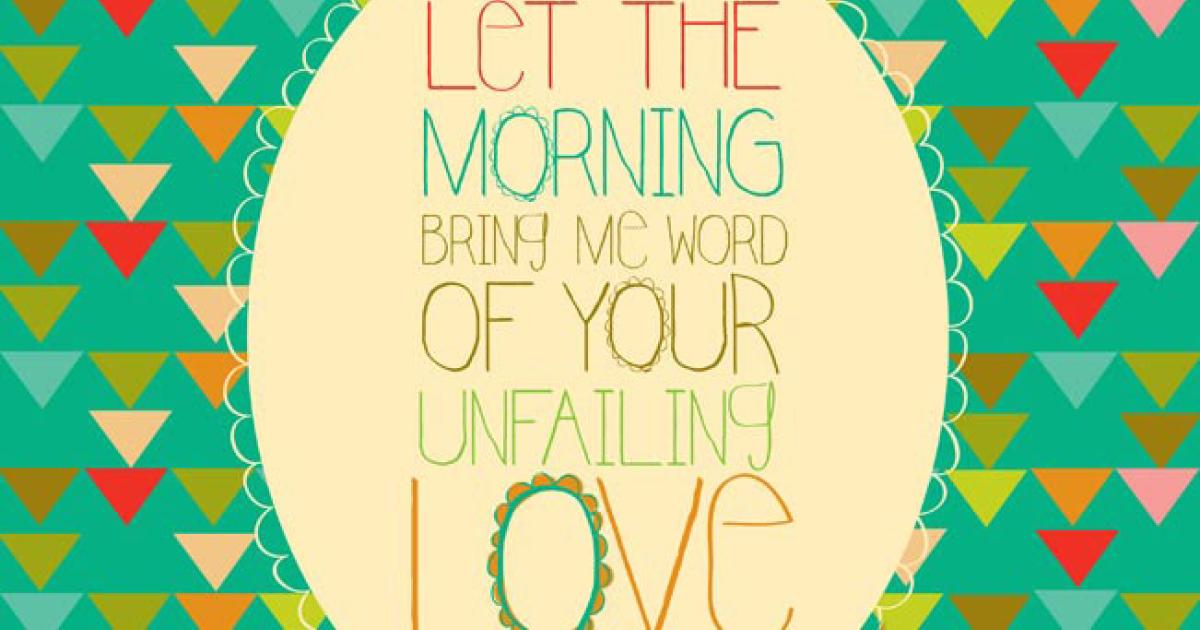 LeT THE
MORNING
BRINg Me WORD
OF YOUR
UNFAILINg
LOVe